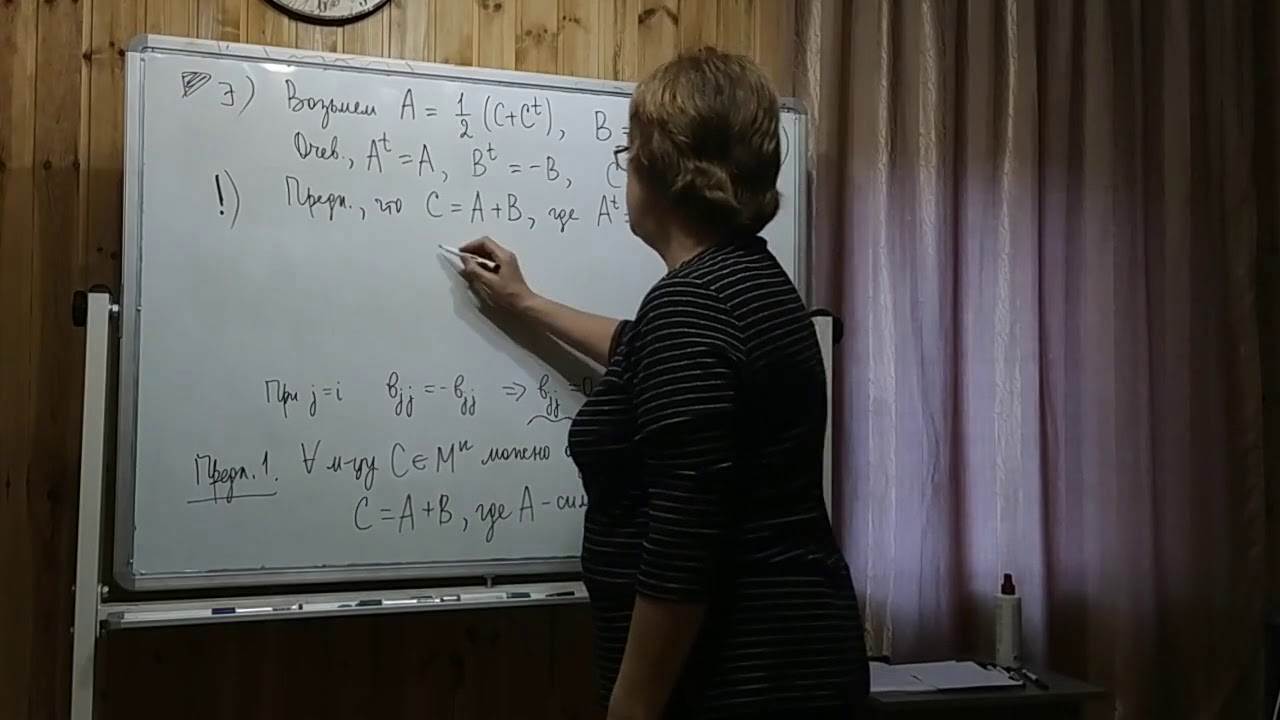 ∃) Возьмем A = 1/2 (C+Cᵗ), B =
Очев., Aᵗ = A, Bᵗ = -B, C
!) Предп., что C = A+B, где Aᵗ =
При j=i вⱼⱼ = -вⱼⱼ ⇒ вⱼⱼ = 0
Предл. 1. ∀ м-цу C ∈ Mⁿ можно
C = A+B, где A - сим